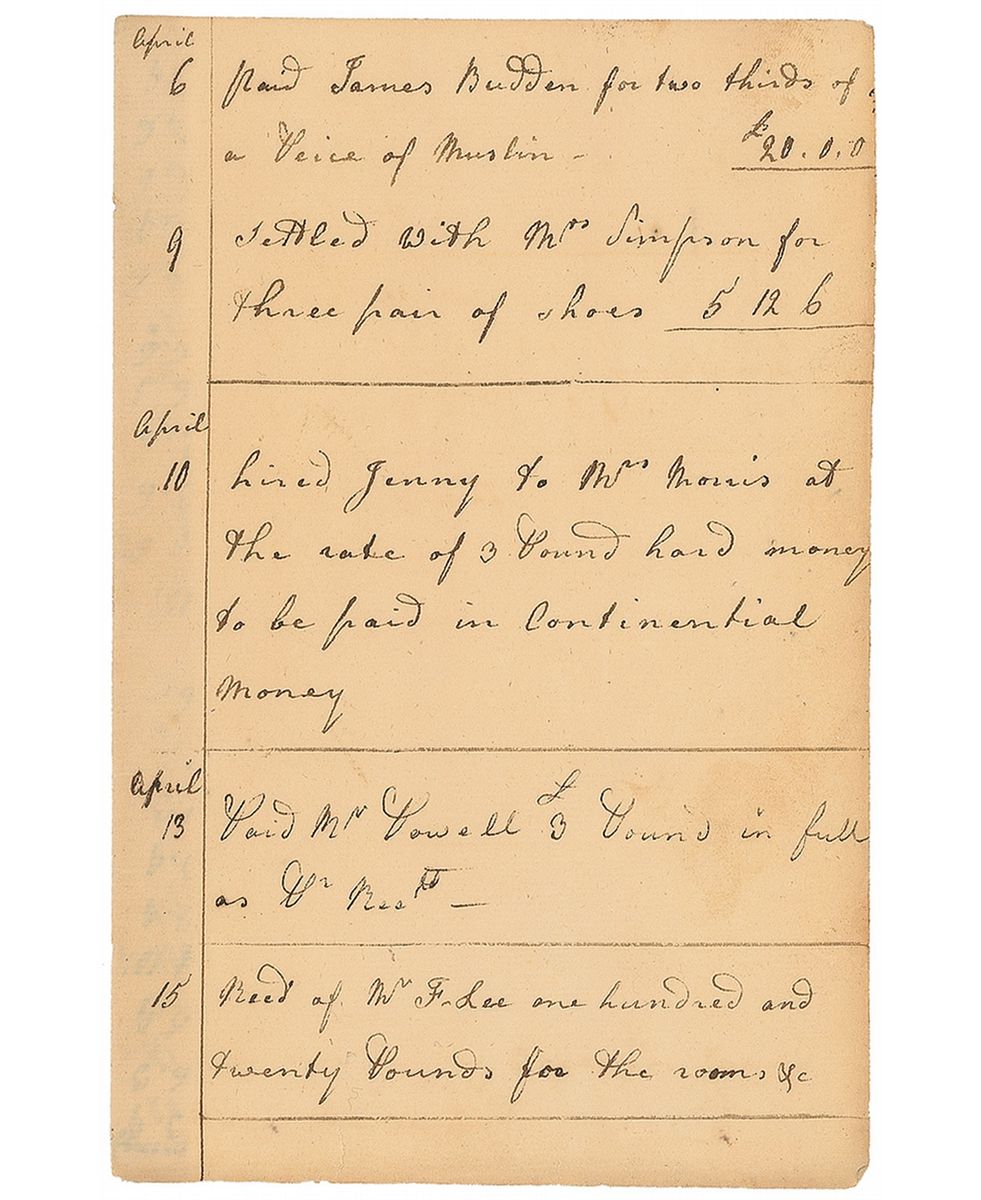 April
6 paid James Budden for two thirds of
a Peice of Muslin - £20.0.0
9 settled with Mrs Simpson for
three pair of shoes 5 12 6
April
10 hired Jenny to Mrs Morris at
the rate of 3 Pound hard money
to be paid in Continential
Money
April
13 Paid Mr Powell £ 3 Pound in full
as Pr Reet —
15 Reed of Mr F. Lee one hundred and
twenty Pounds for the rooms &c